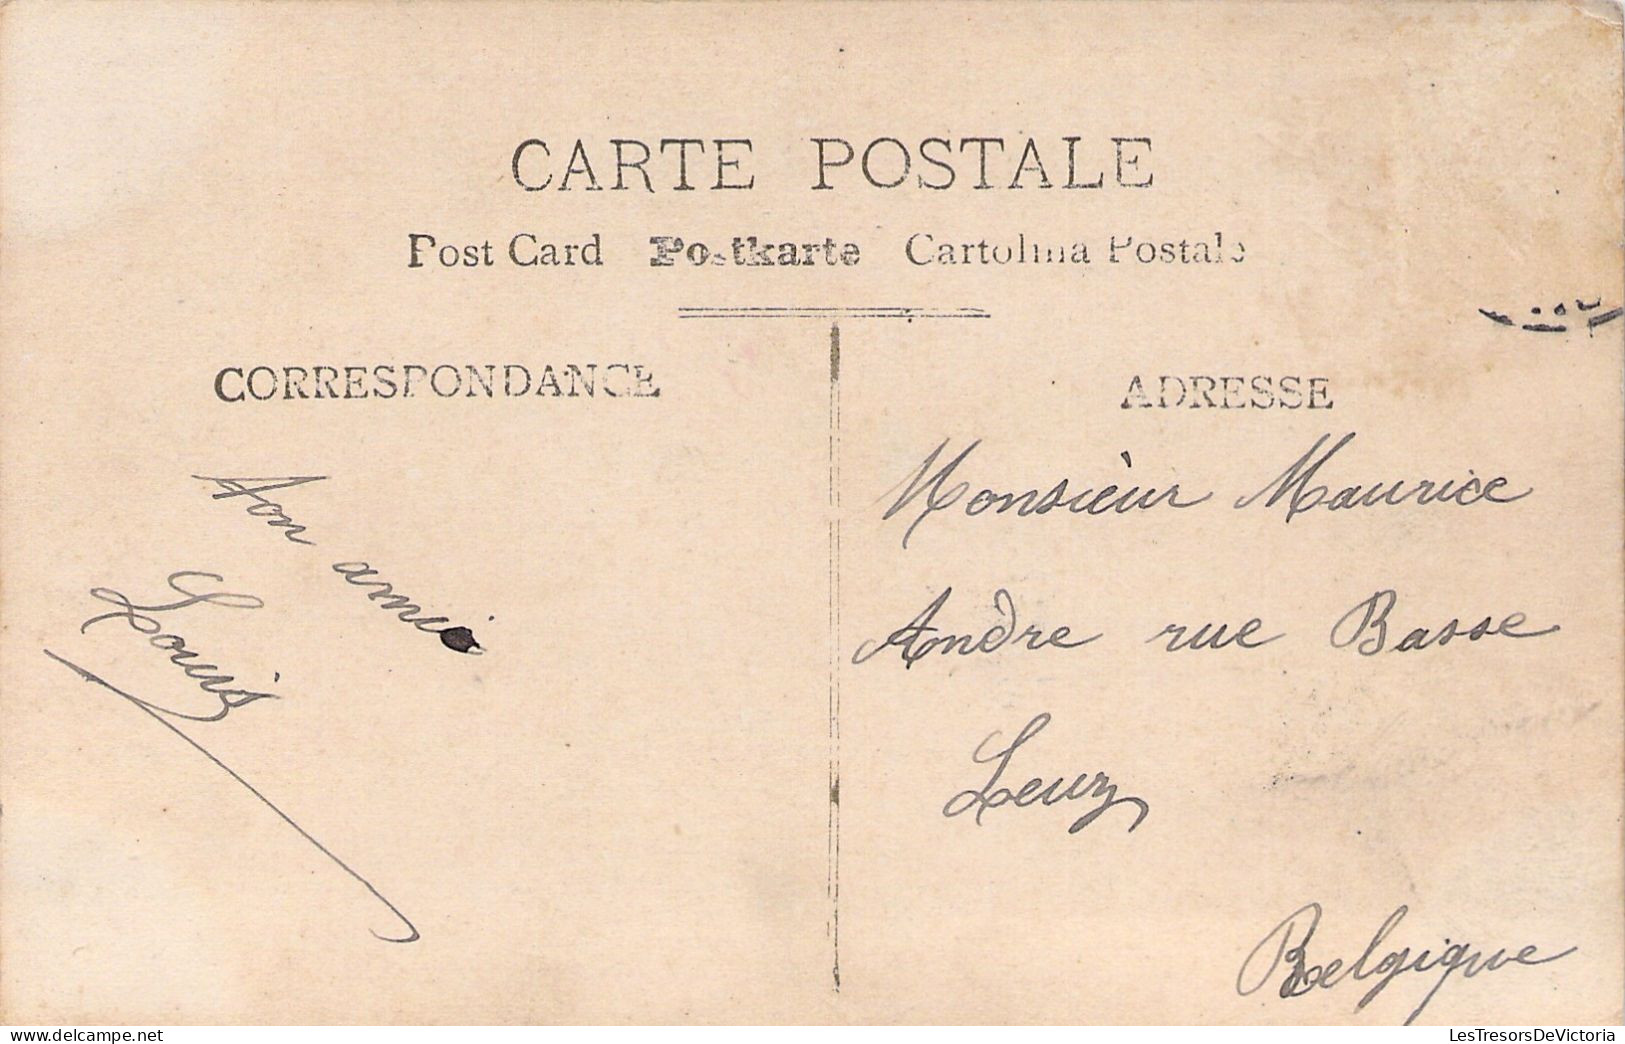 CARTE POSTALE
Post Card Postkarte Cartolina Postale
CORRESPONDANCE
ADRESSE
Ton ami
Louis
Monsieur Maurice
Andre rue Basse
Leuz
Belgique
delcampe.net
LesTresorsDeVictoria